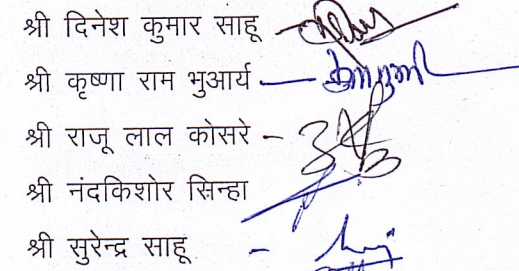 श्री दिनेश कुमार साहू -
श्री कृष्णा राम भुआर्य -
श्री राजू लाल कोसरे -
श्री नंदकिशोर सिन्हा
श्री सुरेन्द्र साहू -